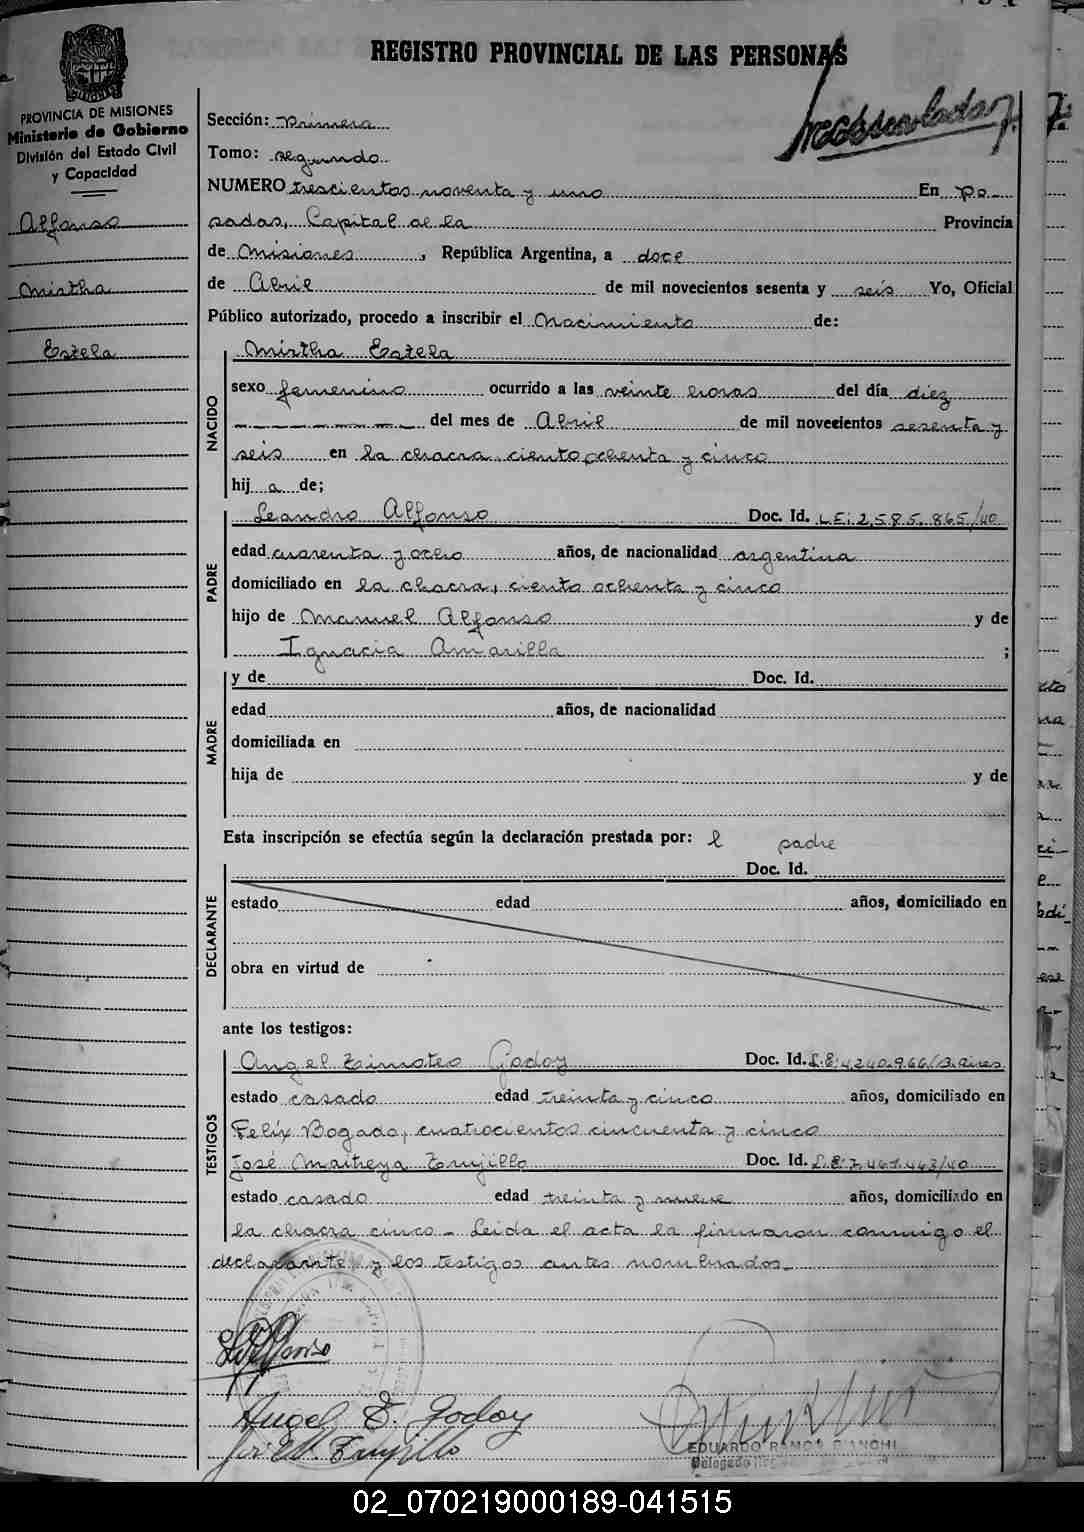 REGISTRO PROVINCIAL DE LAS PERSONAS
PROVINCIA DE MISIONES
Ministerio de Gobierno
División del Estado Civil
y Capacidad
Alfonso
Mirtha
Estela
Sección: Primera
Tomo: segundo
NUMERO trescientos noventa y uno En Po
sadas, Capital de la Provincia
de Misiones, República Argentina, a doce
de Abril de mil novecientos sesenta y seis Yo, Oficial
Público autorizado, procedo a inscribir el Nacimiento de:
NACIDO
Mirtha Estela
sexo femenino ocurrido a las veinte horas del día diez
del mes de Abril de mil novecientos sesenta y
seis en la chacra ciento ochenta y cinco
hij a de;
PADRE
Leandro Alfonso Doc. Id. LE: 2.585.865/40
edad cuarenta y ocho años, de nacionalidad argentina
domiciliado en la chacra, ciento ochenta y cinco
hijo de Manuel Alfonso y de
Ignacia Amarilla ;
MADRE
y de Doc. Id.
edad años, de nacionalidad
domiciliada en
hija de y de
Esta inscripción se efectúa según la declaración prestada por: l padre
DECLARANTE
Doc. Id.
estado edad años, domiciliado en
obra en virtud de
ante los testigos:
TESTIGOS
Angel Timoteo Godoy Doc. Id. L.E: 4.240.966/B.aires
estado casado edad treinta y cinco años, domiciliado en
Felix Bogado, cuatrocientos cincuenta y cinco
José Maitreya Trujillo Doc. Id. L.E: 7.461.443/40
estado casado edad treinta y nueve años, domiciliado en
la chacra cinco - Leida el acta la firmaron conmigo el
declarante y los testigos antes nombrados.-
Angel T. Godoy
José M. Trujillo
EDUARDO RAMON BIANCHI
Delegado
02_070219000189-041515